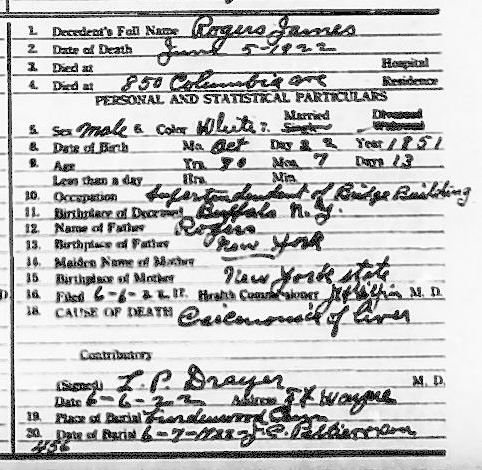 1. Decedent's Full Name Rogers James
2. Date of Death June 5-1922
3. Died at Hospital
4. Died at 850 Columbia ave Residence
PERSONAL AND STATISTICAL PARTICULARS
5. Sex Male 6. Color White 7. Married Single Divorced Widowed
8. Date of Birth Mo. Oct Day 22 Year 1851
9. Age Yrs. Mos. 7 Days 13
Less than a day Hrs. Min.
10. Occupation Supertendendent of Bridge Building
11. Birthplace of Deceased Buffalo N.Y.
12. Name of Father Rogers
13. Birthplace of Father New York
14. Maiden Name of Mother
15 Birthplace of Mother New York state
16. Filed 6-6-22 17. Health Commissioner M. D.
18. CAUSE OF DEATH Carcenomia of liver
Contributory
(Signed) L. P. Drayer M. D.
Date 6-6-22 Address Ft Wayne
19. Place of Burial Lindenwood
20. Date of Burial 6-7-1922
456